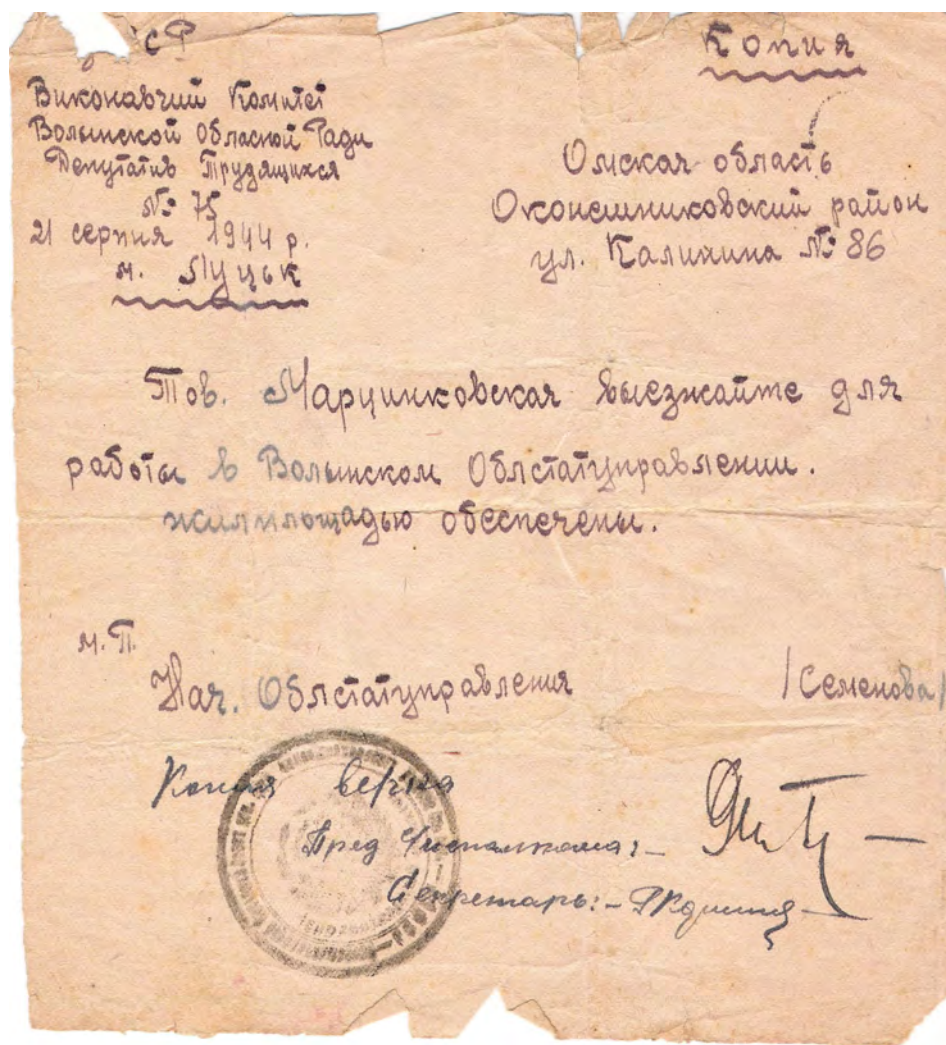 Копия
Виконавчий Комитет
Волынской Обласной Ради
Депутатив Трудящихся
№ 75
21 серпня 1944 р.
м. Луцьк
Омская область
Оконешниковский район
ул. Калинина № 86
Тов. Марцинковская выезжайте для
работы в Волынском Облстатуправлении.
жилплощадью обеспечены.
М.П.
Нач. Облстатуправления /Семенова/
Копия верна
Пред Исполкома:-
Секретарь:-